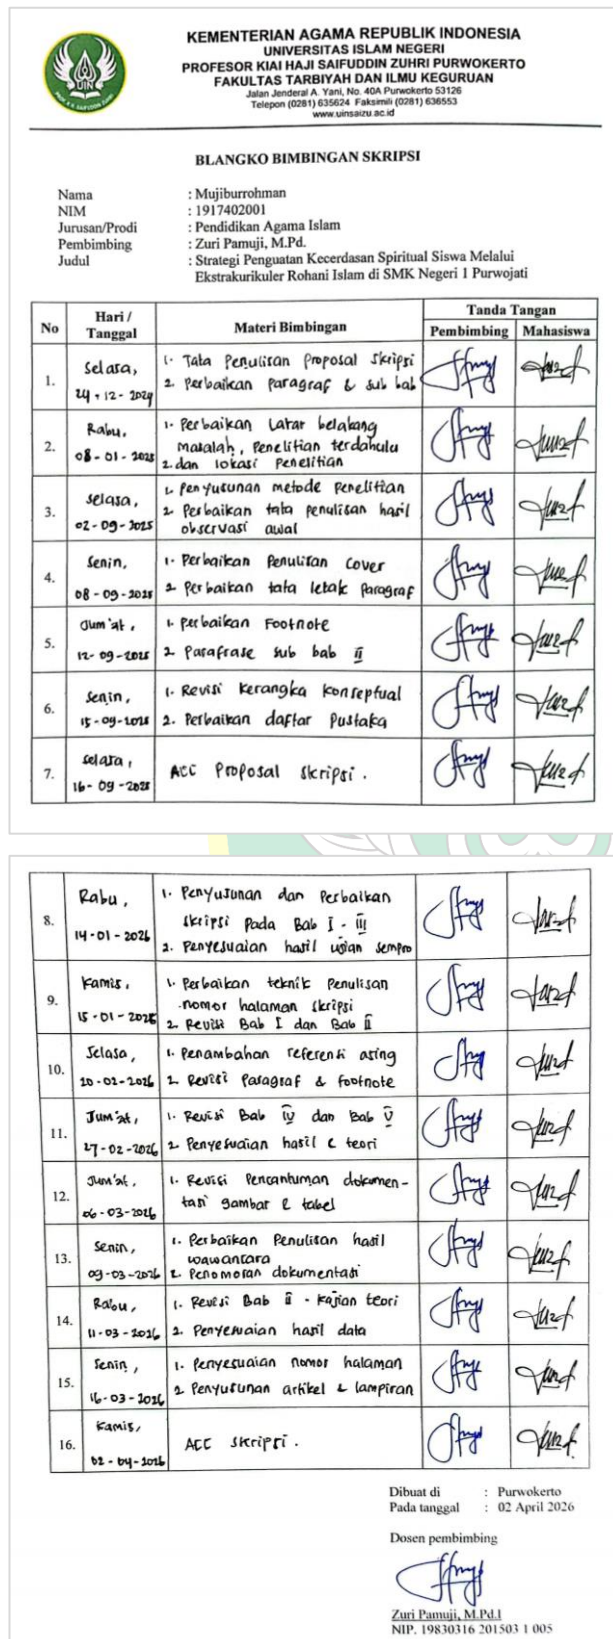 KEMENTERIAN AGAMA REPUBLIK INDONESIA
UNIVERSITAS ISLAM NEGERI
PROFESOR KIAI HAJI SAIFUDDIN ZUHRI PURWOKERTO
FAKULTAS TARBIYAH DAN ILMU KEGURUAN
Jalan Jenderal A. Yani, No. 40A Purwokerto 53126
Telepon (0281) 635624 Faksimili (0281) 636553
www.uinsaizu.ac.id
UIN
BLANGKO BIMBINGAN SKRIPSI
Nama : Mujiburrohman
NIM : 1917402001
Jurusan/Prodi : Pendidikan Agama Islam
Pembimbing : Zuri Pamuji, M.Pd.
Judul : Strategi Penguatan Kecerdasan Spiritual Siswa Melalui
Ekstrakurikuler Rohani Islam di SMK Negeri 1 Purwojati
No Hari / Tanggal Materi Bimbingan Tanda Tangan
Pembimbing Mahasiswa
1. Selasa, 1. Tata Penulisan Proposal Skripsi
24-12-2024 2. Perbaikan Paragraf & sub bab
2. Rabu, 1. Perbaikan Latar belakang
masalah, Penelitian terdahulu
08-01-2025 2. dan lokasi Penelitian
3. Selasa, 1. Penyusunan metode Penelitian
02-09-2025 2. Perbaikan tata penulisan hasil
observasi awal
4. Senin, 1. Perbaikan Penulisan Cover
08-09-2025 2. Perbaikan tata letak Paragraf
5. Jum'at, 1. Perbaikan Footnote
12-09-2025 2. Parafrase sub bab II
6. Senin, 1. Revisi Kerangka Konseptual
15-09-2025 2. Perbaikan daftar Pustaka
7. Selasa, ACC Proposal Skripsi.
16-09-2025
8. Rabu, 1. Penyusunan dan Perbaikan
skripsi Pada Bab I - III
14-01-2026 2. Penyesuaian hasil ujian sempro
9. Kamis, 1. Perbaikan teknik Penulisan
nomor halaman skripsi
15-01-2026 2. Revisi Bab I dan Bab II
10. Selasa, 1. Penambahan referensi asing
20-02-2026 2. Revisi Paragraf & footnote
11. Jum'at, 1. Revisi Bab IV dan Bab V
27-02-2026 2. Penyesuaian hasil & teori
12. Jum'at, 1. Revisi Pencantuman dokumen-
06-03-2026 tasi gambar & tabel
13. Senin, 1. Perbaikan Penulisan hasil
wawancara
09-03-2026 2. Penomoran dokumentasi
14. Rabu, 1. Revisi Bab II - Kajian teori
11-03-2026 2. Penyesuaian hasil data
15. Senin, 1. Penyesuaian nomor halaman
16-03-2026 2. Penyusunan artikel & lampiran
16. Kamis, ACC Skripsi.
02-04-2026
Dibuat di : Purwokerto
Pada tanggal : 02 April 2026
Dosen pembimbing
Zuri Pamuji, M.Pd.I
NIP. 19830316 201503 1 005